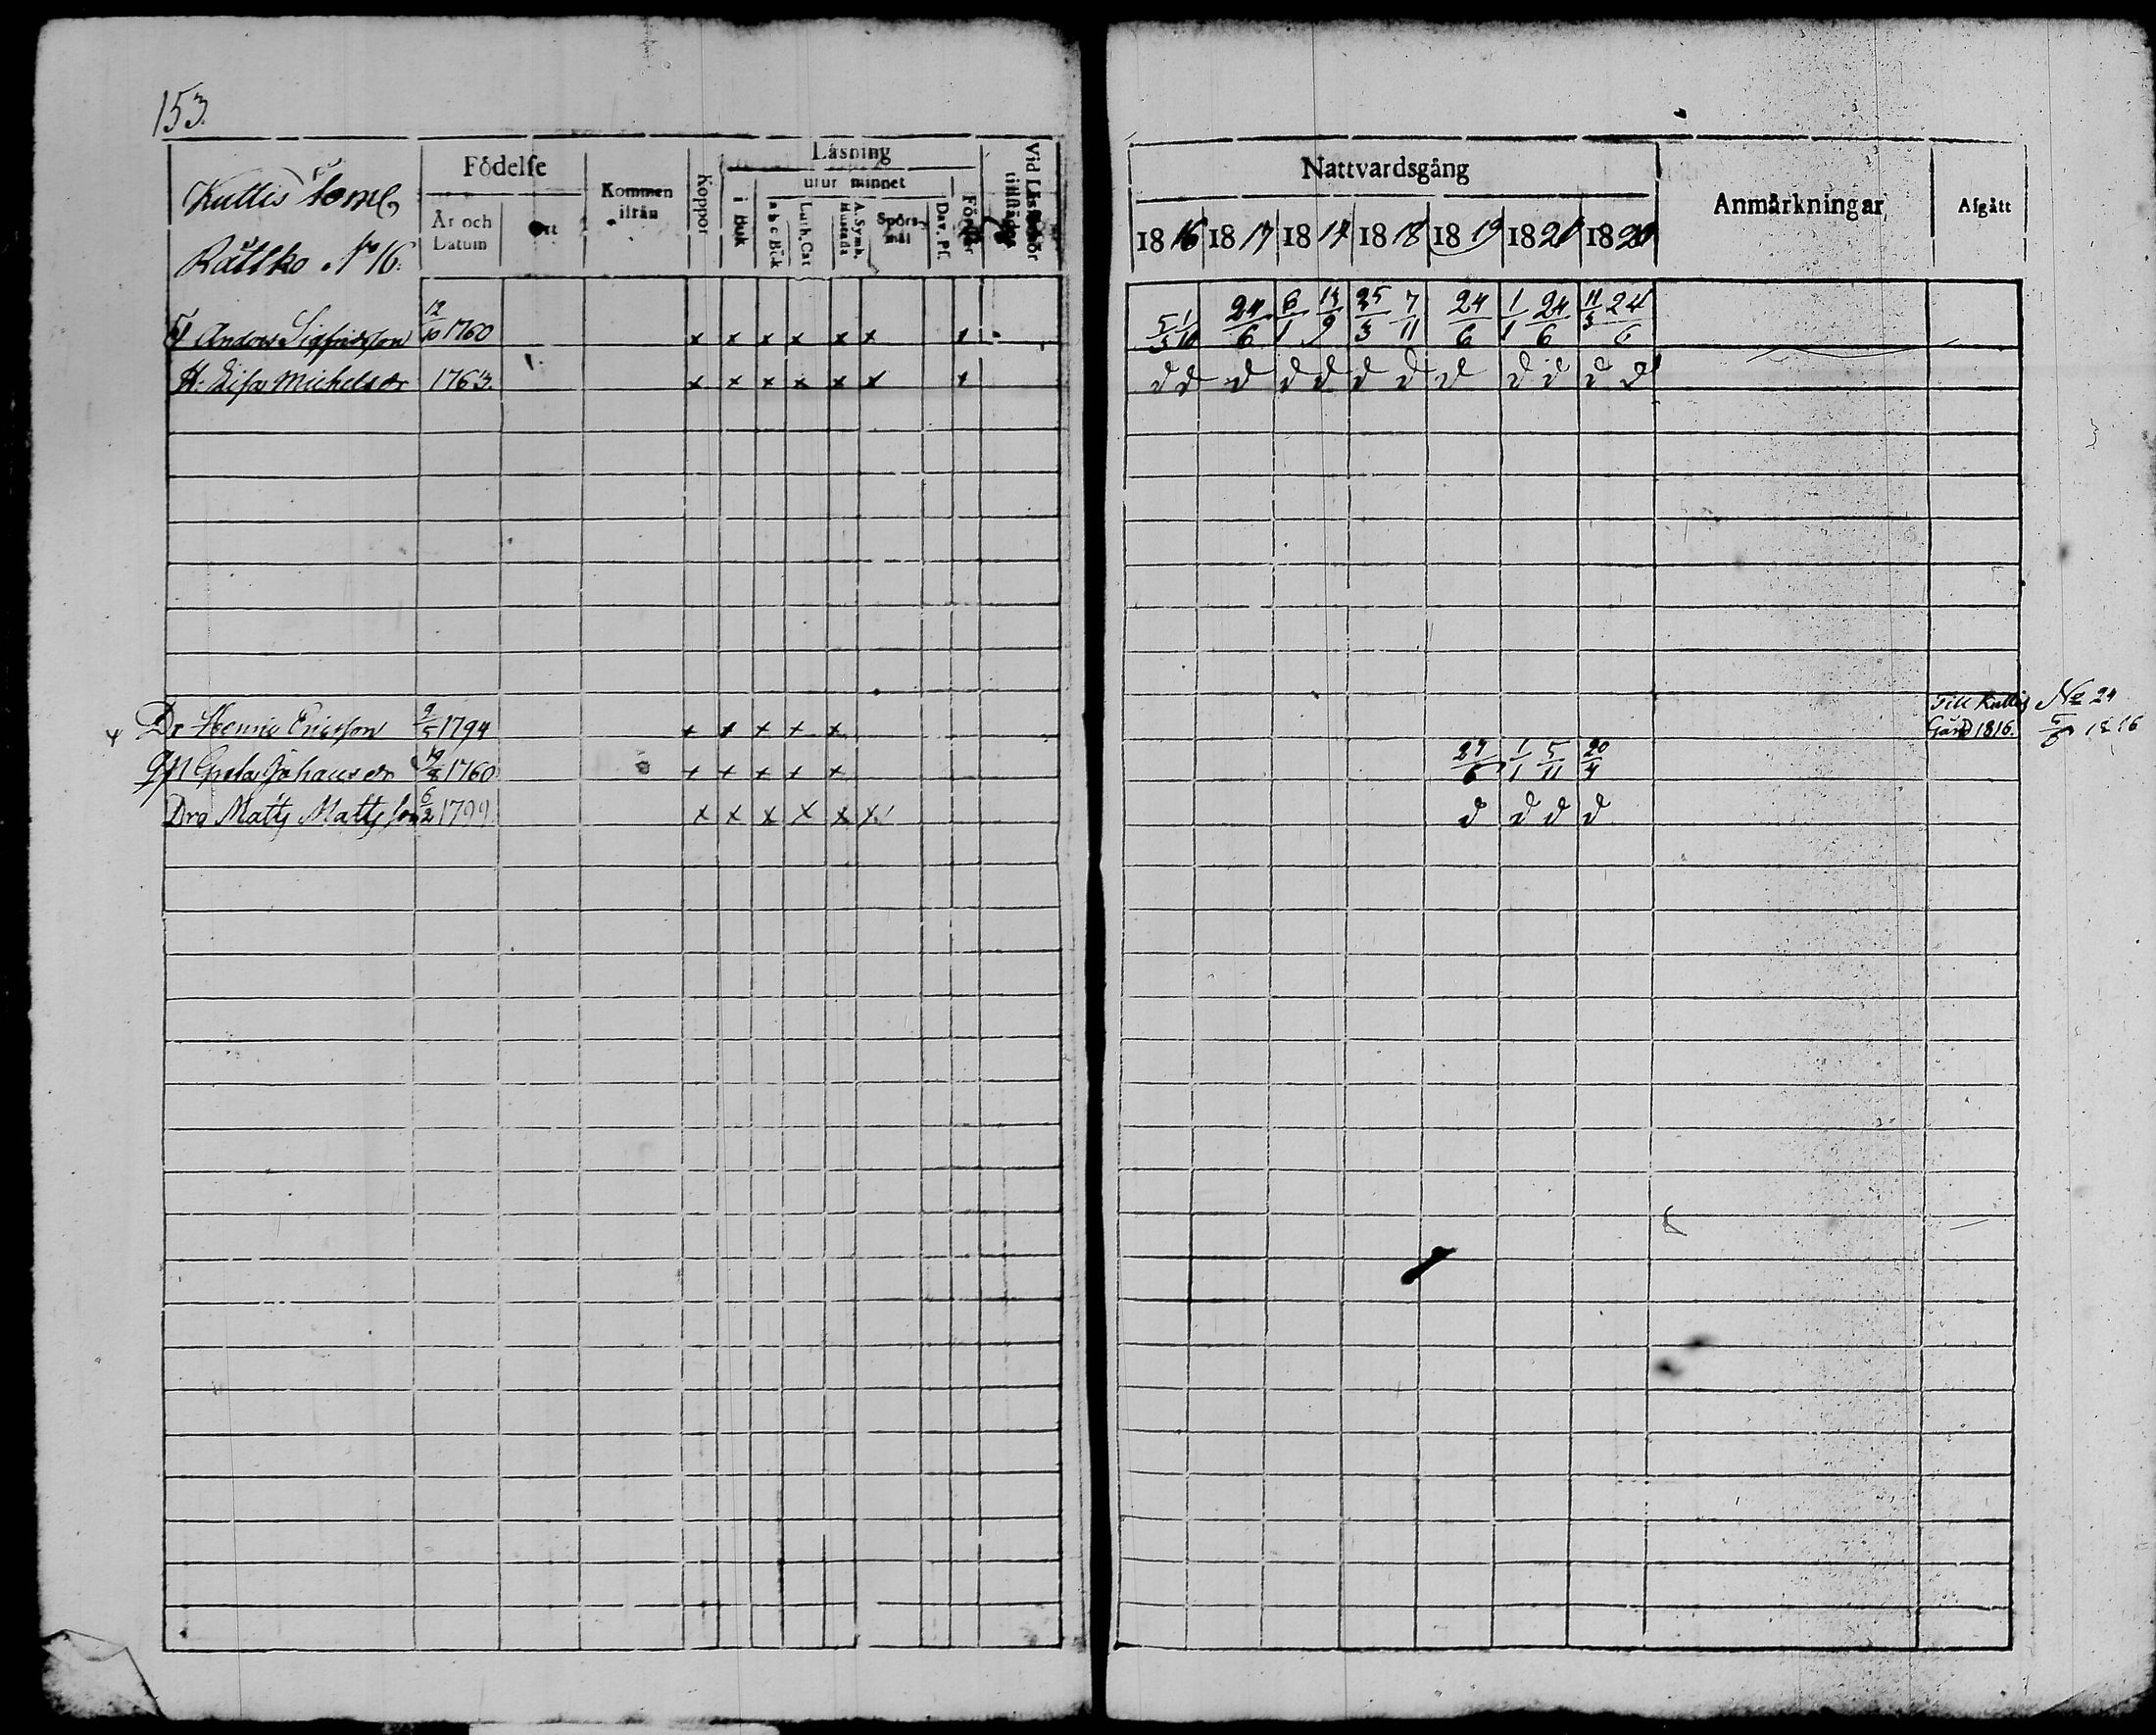 153.
Kuttis
Rätkko No 16.
Födelse
År och Datum
Ort
Kommen ifrån
Koppor
Läsning
i Bok
utur minnet
a b c Bok
Luth. Cat
A. Symb. Hustafla
Spörsmål
Dav. Ps.
Förstår
Vid Läsförhör tillstädes
Nattvardsgång
18 16 18 17 18 18 18 18 19 18 18
Anmärkningar
Afgått
Anders Sigfridsson 12/10 1760 x x x x x x x 24/6 6/1 25/3 7/11 24/6 1/1 24/6 11/3 24/6
H. Lisa Michelsdr 1763. x x x x x x x d d d d d d d d d d d d
Dr Henric Ericsson 9/5 1794 x x x x x Till Kuttis No 24
Gård 1816. 1816
Greta Johansdr 1760 x x x x x 1/1 5/11 20/4
Dro Matts Mattsson 6/2 1799 x x x x x x d d d d